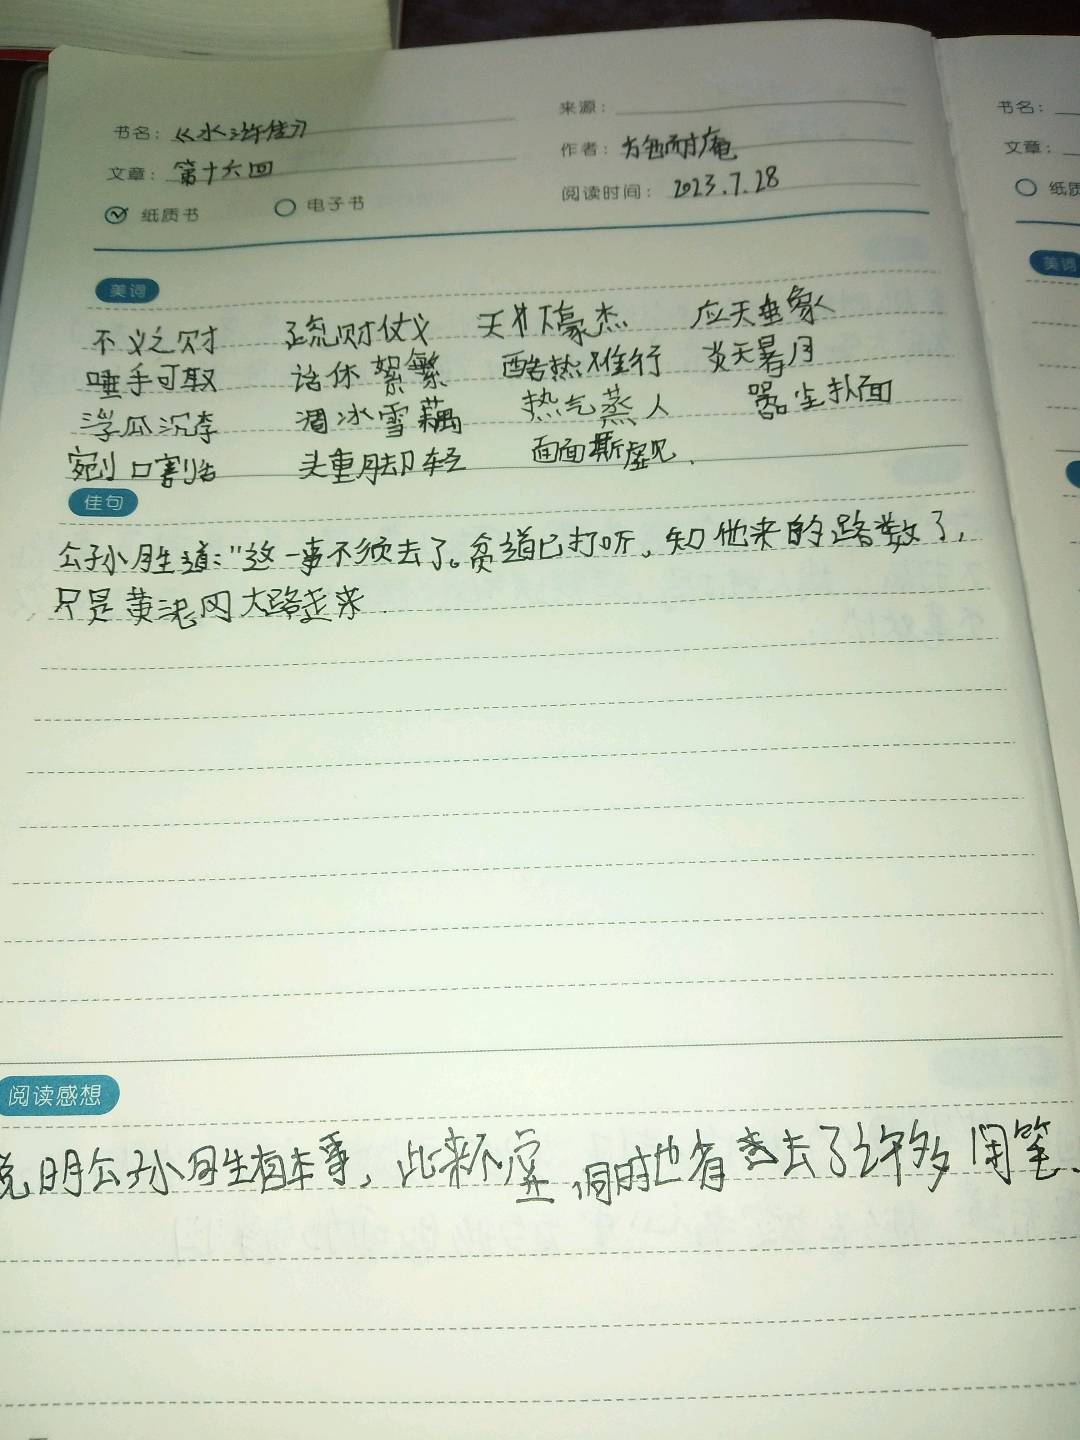 书名：《水浒传》
来源：
文章：第十六回
作者：施耐庵
纸质书 电子书
阅读时间：2023.7.28
美词
不义之财 疏财仗义 天下豪杰 应天垂象
唾手可取 话休絮繁 酷热难行 炎天暑月
浮瓜沉李 调冰雪藕 热气蒸人 嚣尘扑面
剜口割舌 头重脚轻 面面厮虚见.
佳句
公孙胜道:"这一事不须去了。贫道已打听。知他来的路数了,
只是黄泥冈大路走来.
阅读感想
说明公孙胜有本事,此来不虚,同时也省去了许多闲笔.
书名：
文章：
纸质
美词